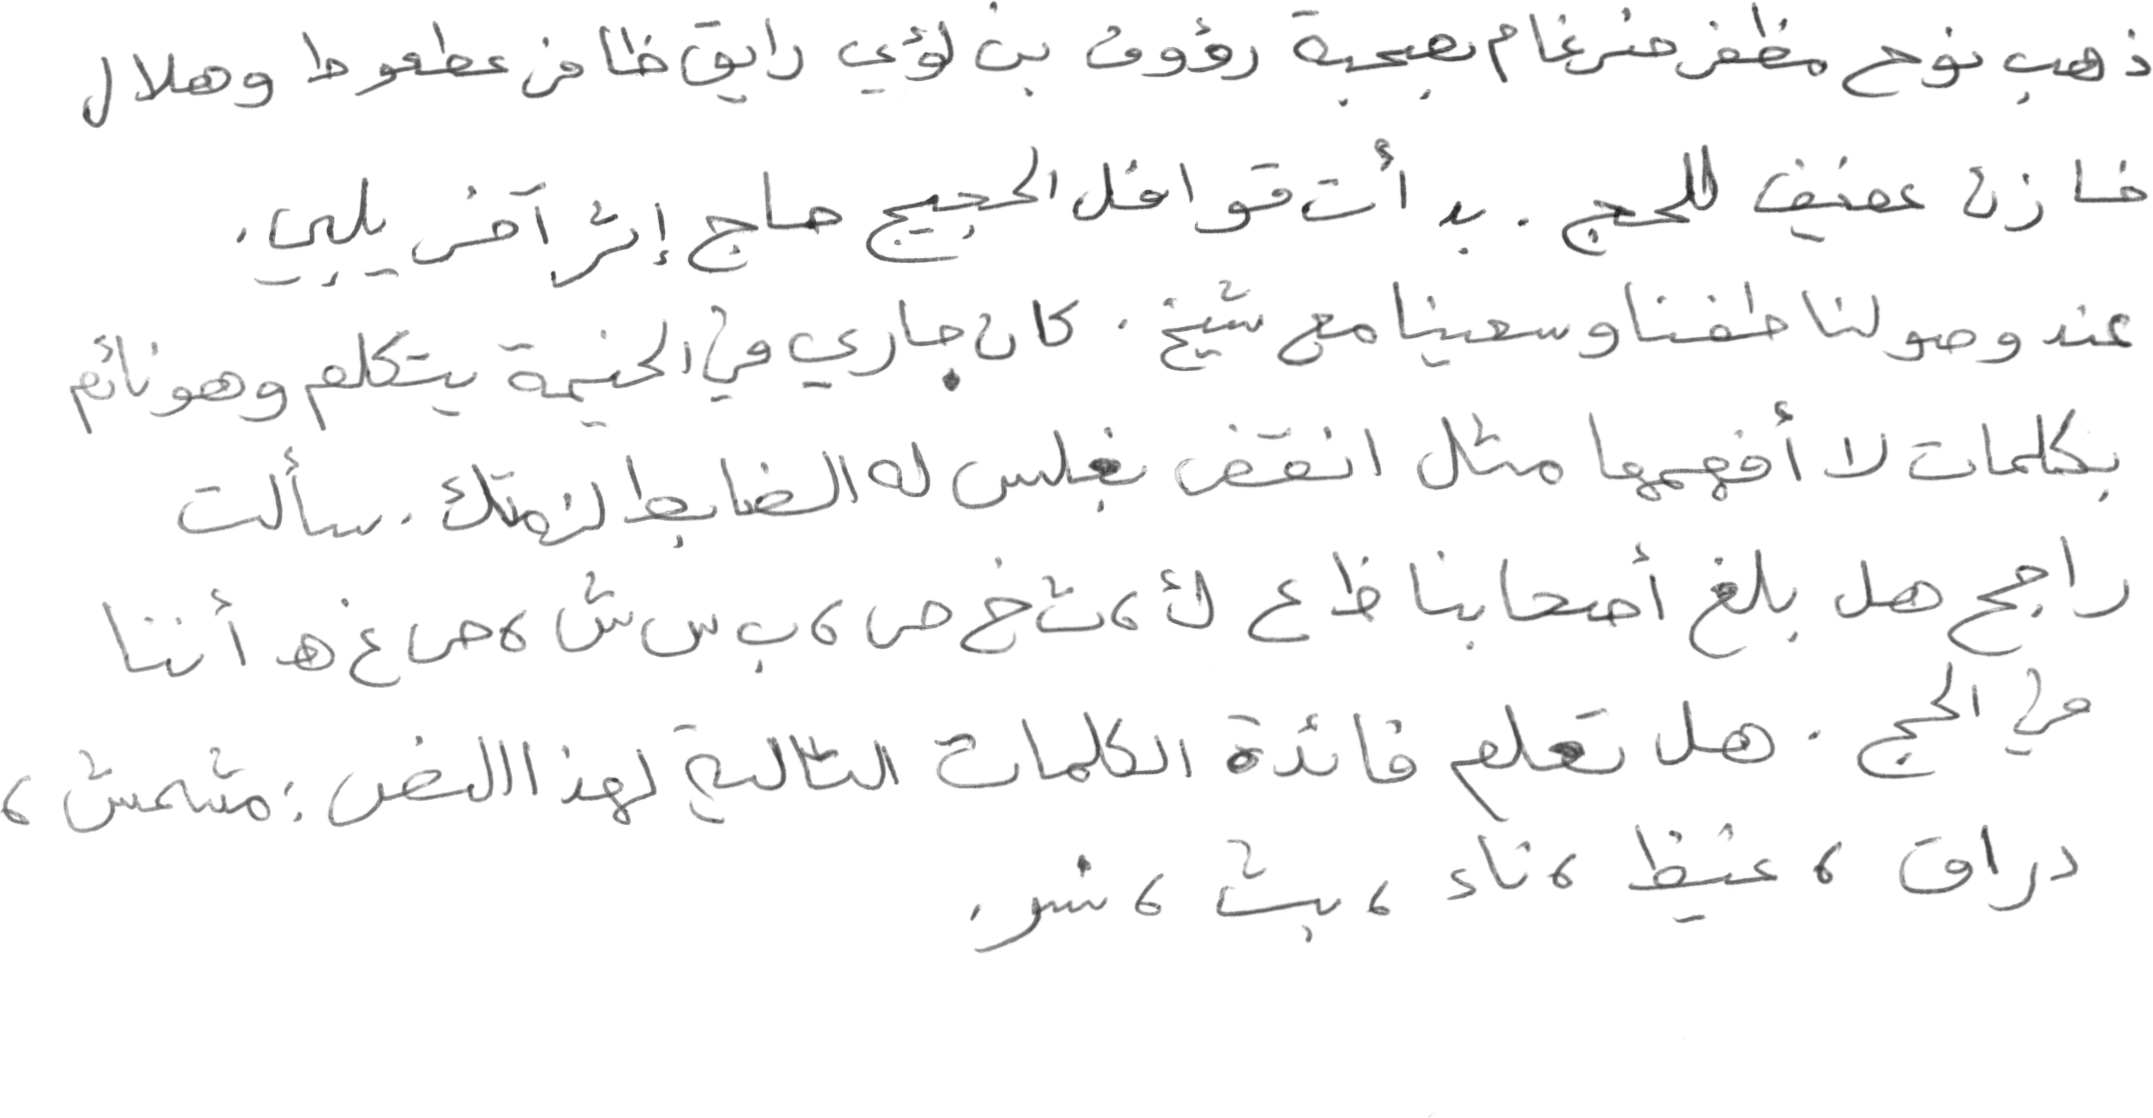 ذهب نوح مظفر ضرغام بصحبة رؤوف بن لؤي رايق ظافر عطعوط وهلال
خازن عفيف للحج. بدأت قوافل الحجيج حاج إثر آخر يلبي.
عند وصولنا طفنا وسعينا مع شيخ. كان جاري في الخيمة يتكلم وهو نائم
بكلمات لا أفهمها مثل انقض بغلس له الضابط لزمتك. سألت
راجح هل بلغ أصحابنا ظ ع ك، ث خ ص، ب س ش، ص غ هـ أننا
في الحج. هل تعلم فائدة الكلمات التالية لهذا النص: مشمش،
دراق، غيظ، ناء، بث، شر.